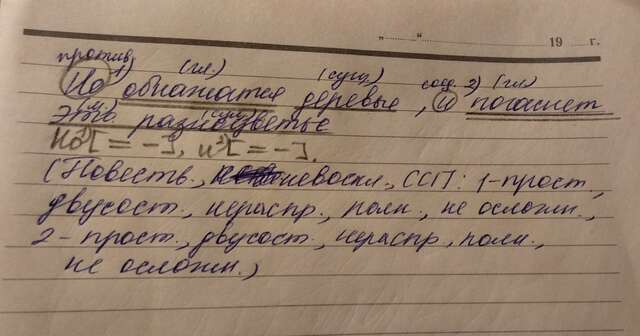 „ “ 19 г.
против. 1) (гл.) (сущ.) соед. 2) (гл.)
Но обнажатся деревья, и погаснет
(сущ.)
это разноцветье
Но¹[= –], и²[= –].
(Повеств., невоскл., ССП: 1-прост.,
двусост., нераспр., полн., не осложн.,
2-прост., двусост., нераспр, полн.,
не осложн.)